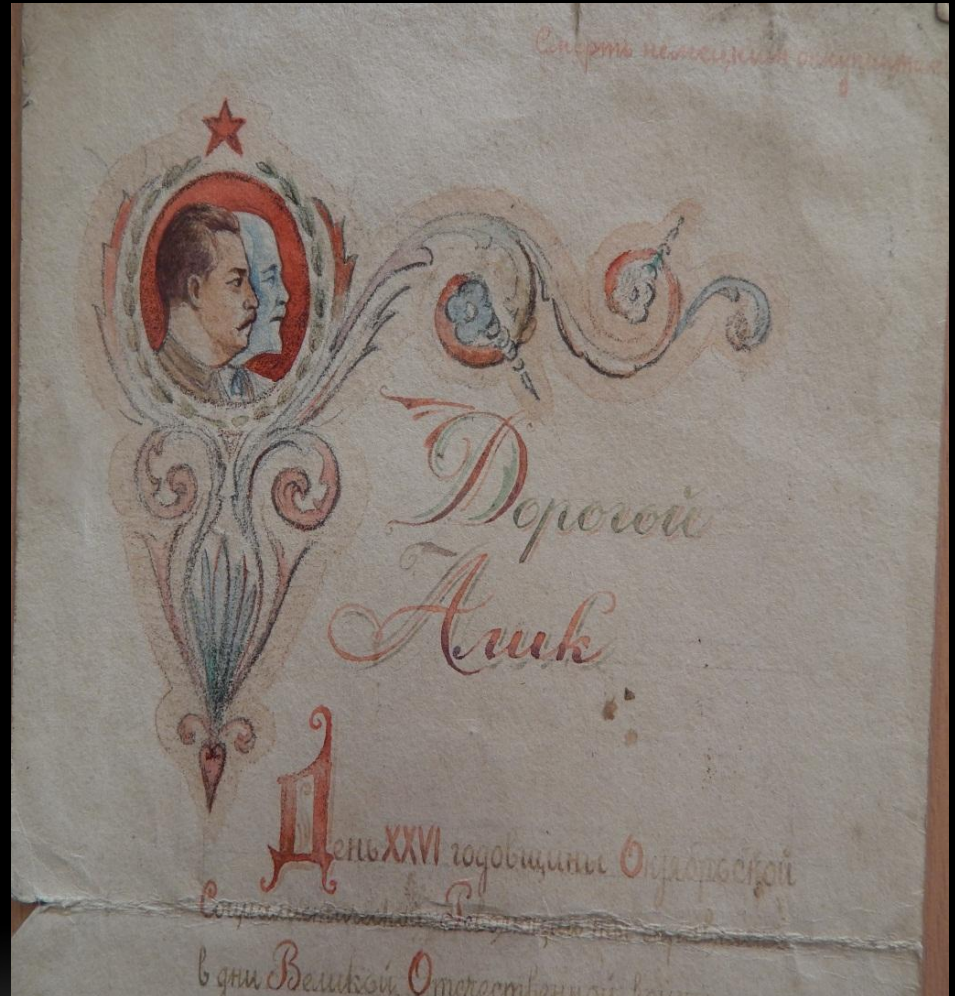 Смерть немецким оккупантам
Дорогой
Алик
День XXVI годовщины Октябрьской
Социалистической Революции ты
в дни Великой Отечественной войны